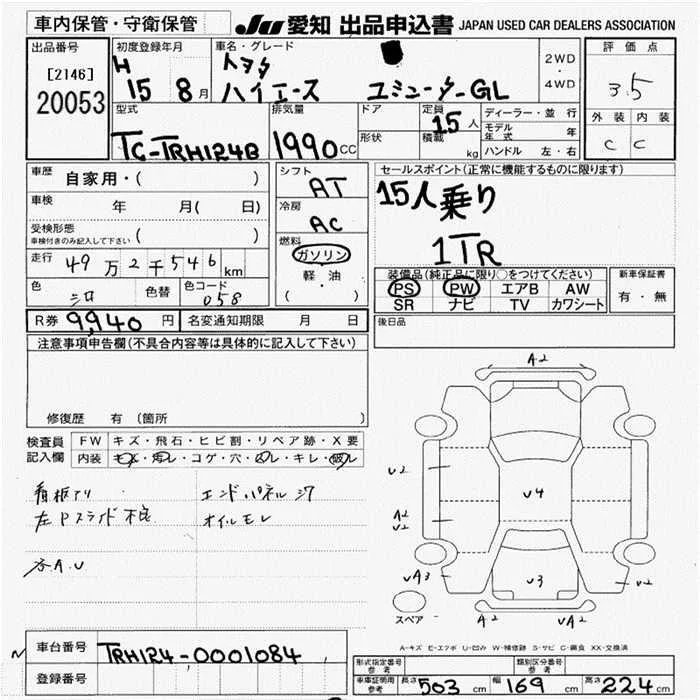 車内保管・守衛保管
JU 愛知 出品申込書 JAPAN USED CAR DEALERS ASSOCIATION
出品番号
[2146]
20053
初度登録年月
H 15 8月
車名・グレード
トヨタ
ハイエース コミューターGL
2WD
・
4WD
評価点
3.5
外装 内装
C C
型式
TC-TRH124B
排気量
1990CC
ドア
形状
定員
15人
積載
kg
ディーラー・並行
モデル年式 年
ハンドル 左・右
車歴 自家用・( )
車検 年 月( 日)
受検形態
車検付きのみ記入して下さい ( )
走行 49万2千546km
色 シロ 色替 色コード 058
シフト
AT
冷房
AC
燃料
ガソリン
軽・油
( )
セールスポイント(正常に機能するものに限ります)
15人乗り
1TR
装備品(純正品に限り○をつけてください)
PS PW エアB AW
SR ナビ TV カワシート
新車保証書
有・無
R券 9,940円 名変通知期限 月 日
後日品
注意事項申告欄(不具合内容等は具体的に記入して下さい)
修復歴 有 (箇所 )
検査員記入欄
FW キズ・飛石・ヒビ割・リペア跡・X要
内装 キズ・汚レ・コゲ・穴・ハレ・キレ・破レ
看板アリ エンドパネルシワ
左Pスライド不良 オイルモレ
A.U
A2
U2
A2
U2
U4
UA3
U3
U2
A2
UA2
スペア
A-キズ E-エクボ U-凹み W-補修跡 S-サビ C-腐食 XX-交換済
車台番号 TRH124-0001084
登録番号
形式指定番号 参考
類別区分番号 参考
車庫証明用 参考 長さ503cm 幅169cm 高さ224cm